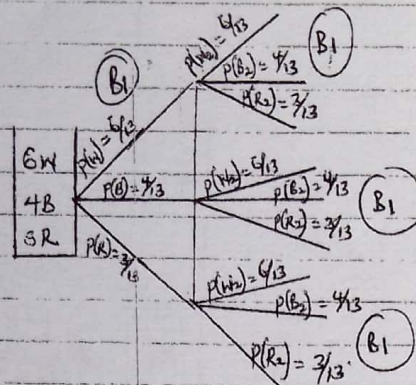 6W
4B
3R
B1
P(W) = 6/13
P(B) = 4/13
P(R) = 3/13
P(W2) = 6/13
P(B2) = 4/13
P(R2) = 3/13
B1
P(W2) = 6/13
P(B2) = 4/13
P(R2) = 3/13
B1
P(W2) = 6/13
P(B2) = 4/13
P(R2) = 3/13
B1